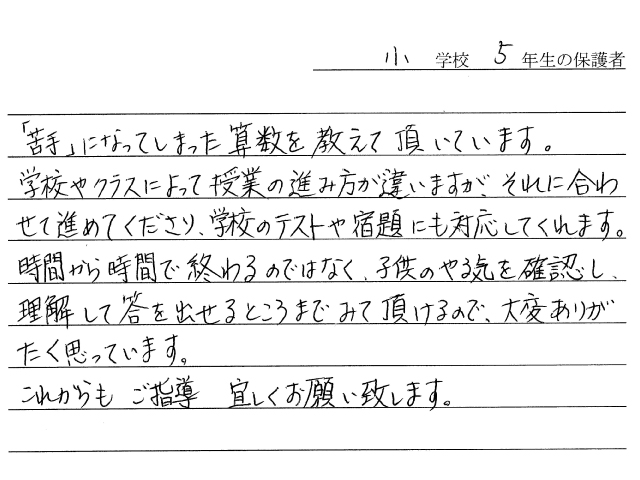 小 学校 5 年生の保護者
「苦手」になってしまった算数を教えて頂いています。
学校やクラスによって授業の進み方が違いますが、それに合わ
せて進めてくださり、学校のテストや宿題にも対応してくれます。
時間から時間で終わるのではなく、子供のやる気を確認し、
理解して答を出せるところまでみて頂けるので、大変ありが
たく思っています。
これからも ご指導 宜しくお願い致します。